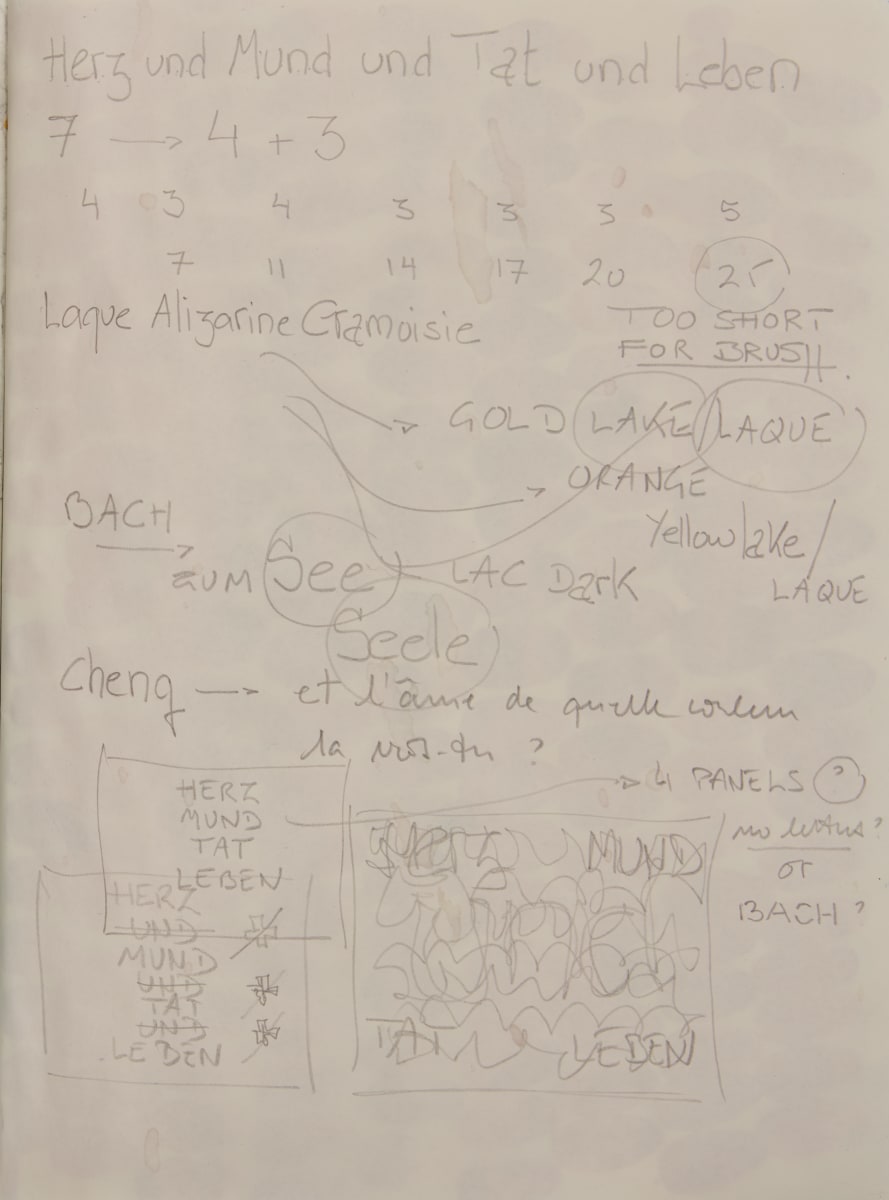 Herz und Mund und Tat und Leben
7 → 4 + 3
4 3 4 3 3 3 5
7 11 14 17 20 25
Laque Alizarine Cramoisie
TOO SHORT
FOR BRUSH.
→ GOLD LAKE/LAQUE
→ ORANGE
BACH
Yellow lake/
LAQUE
→ ZUM See
LAC Dark
Seele
Cheng → et l'âme de quelle couleur
la vois-tu ?
→ 4 PANELS ?
HERZ
MUND
TAT
LEBEN
HERZ
UND
MUND
UND
TAT
UND
LEBEN
HERZ MUND
TAT LEBEN
no letters?
or
BACH?